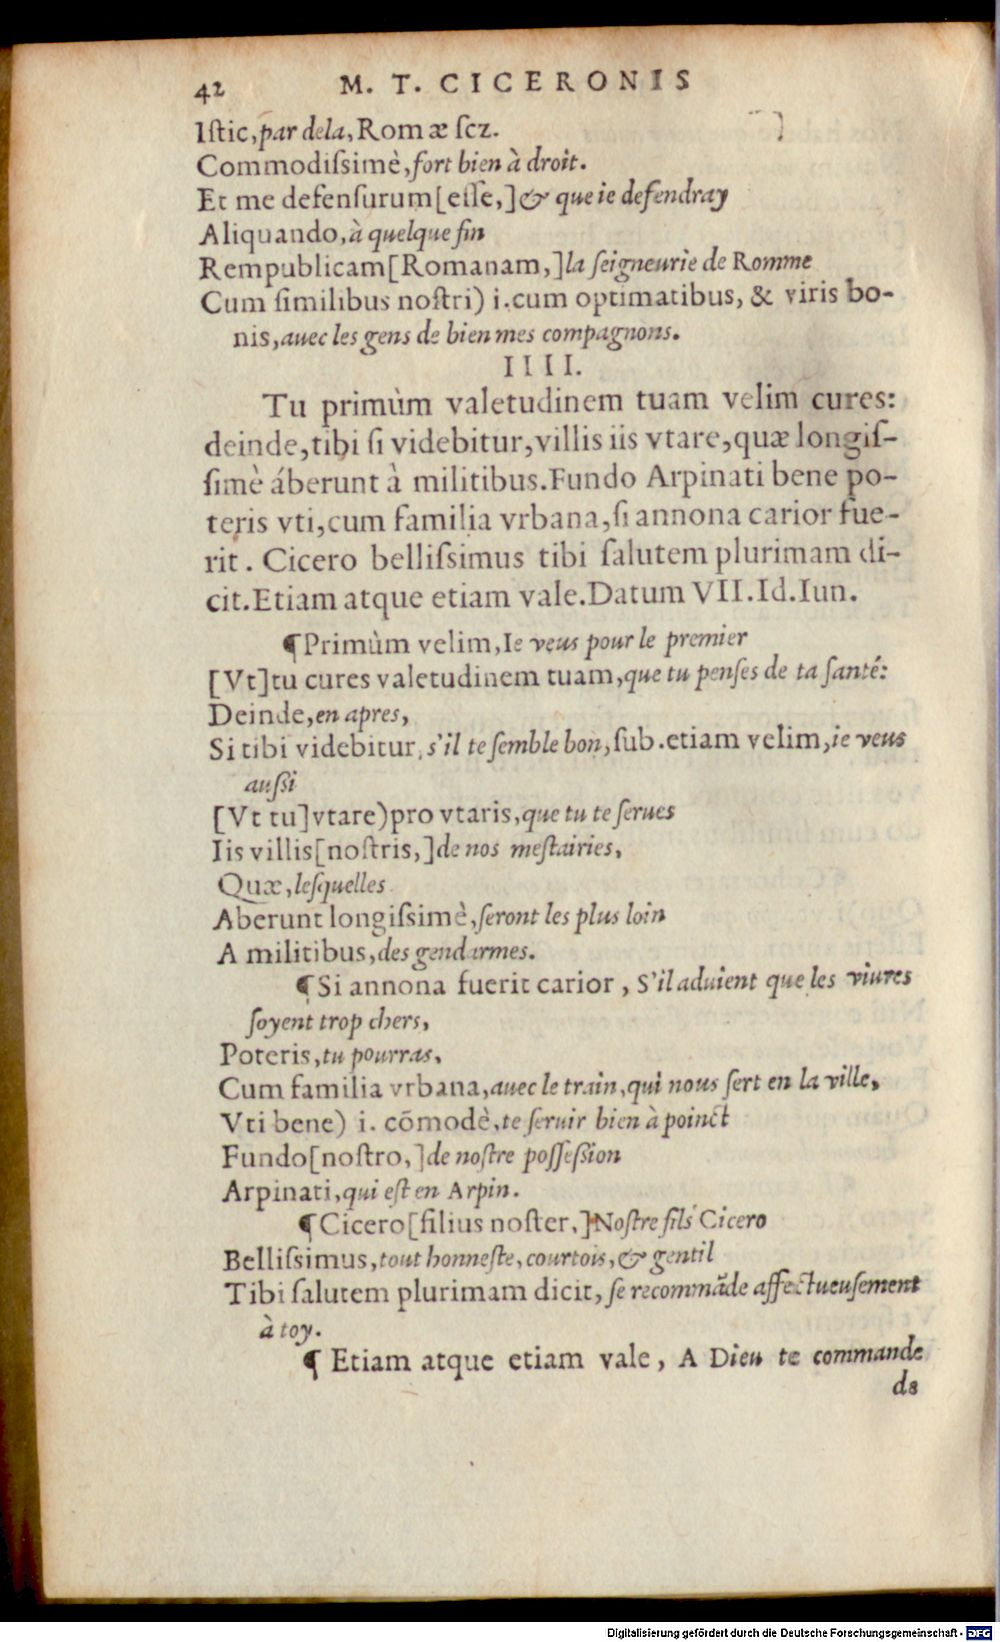 42 M. T. CICERONIS
Iſtic, par dela, Romæ ſcz.
Commodiſsimè, fort bien à droit.
Et me defenſurum [eſſe,] & que ie defendray
Aliquando, à quelque fin
Rempublicam [Romanam,] la ſeigneurie de Romme
Cum ſimilibus noſtri) i. cum optimatibus, & viris bo-
nis, auec les gens de bien mes compagnons.
IIII.
Tu primùm valetudinem tuam velim cures:
deinde, tibi ſi videbitur, villis iis vtare, quæ longiſ-
ſimè áberunt à militibus. Fundo Arpinati bene po-
teris vti, cum familia vrbana, ſi annona carior fue-
rit. Cicero belliſsimus tibi ſalutem plurimam di-
cit. Etiam atque etiam vale. Datum VII. Id. Iun.
¶ Primùm velim, Ie veus pour le premier
[Vt] tu cures valetudinem tuam, que tu penſes de ta ſanté:
Deinde, en apres,
Si tibi videbitur, s'il te ſemble bon, ſub. etiam velim, ie veus
auſsi
[Vt tu] vtare) pro vtaris, que tu te ſerues
Iis villis [noſtris,] de nos meſtairies,
Quæ, leſquelles
Aberunt longiſsimè, ſeront les plus loin
A militibus, des gendarmes.
¶ Si annona fuerit carior, S'il aduient que les viures
ſoyent trop chers,
Poteris, tu pourras,
Cum familia vrbana, auec le train, qui nous ſert en la ville,
Vti bene) i. cōmodè, te ſeruir bien à poinct
Fundo [noſtro,] de noſtre poſſeſsion
Arpinati, qui eſt en Arpin.
¶ Cicero [filius noſter,] Noſtre fils Cicero
Belliſsimus, tout honneſte, courtois, & gentil
Tibi ſalutem plurimam dicit, ſe recommāde affectueuſement
à toy.
¶ Etiam atque etiam vale, A Dieu te commande
de
Digitalisierung gefördert durch die Deutsche Forschungsgemeinschaft - DFG